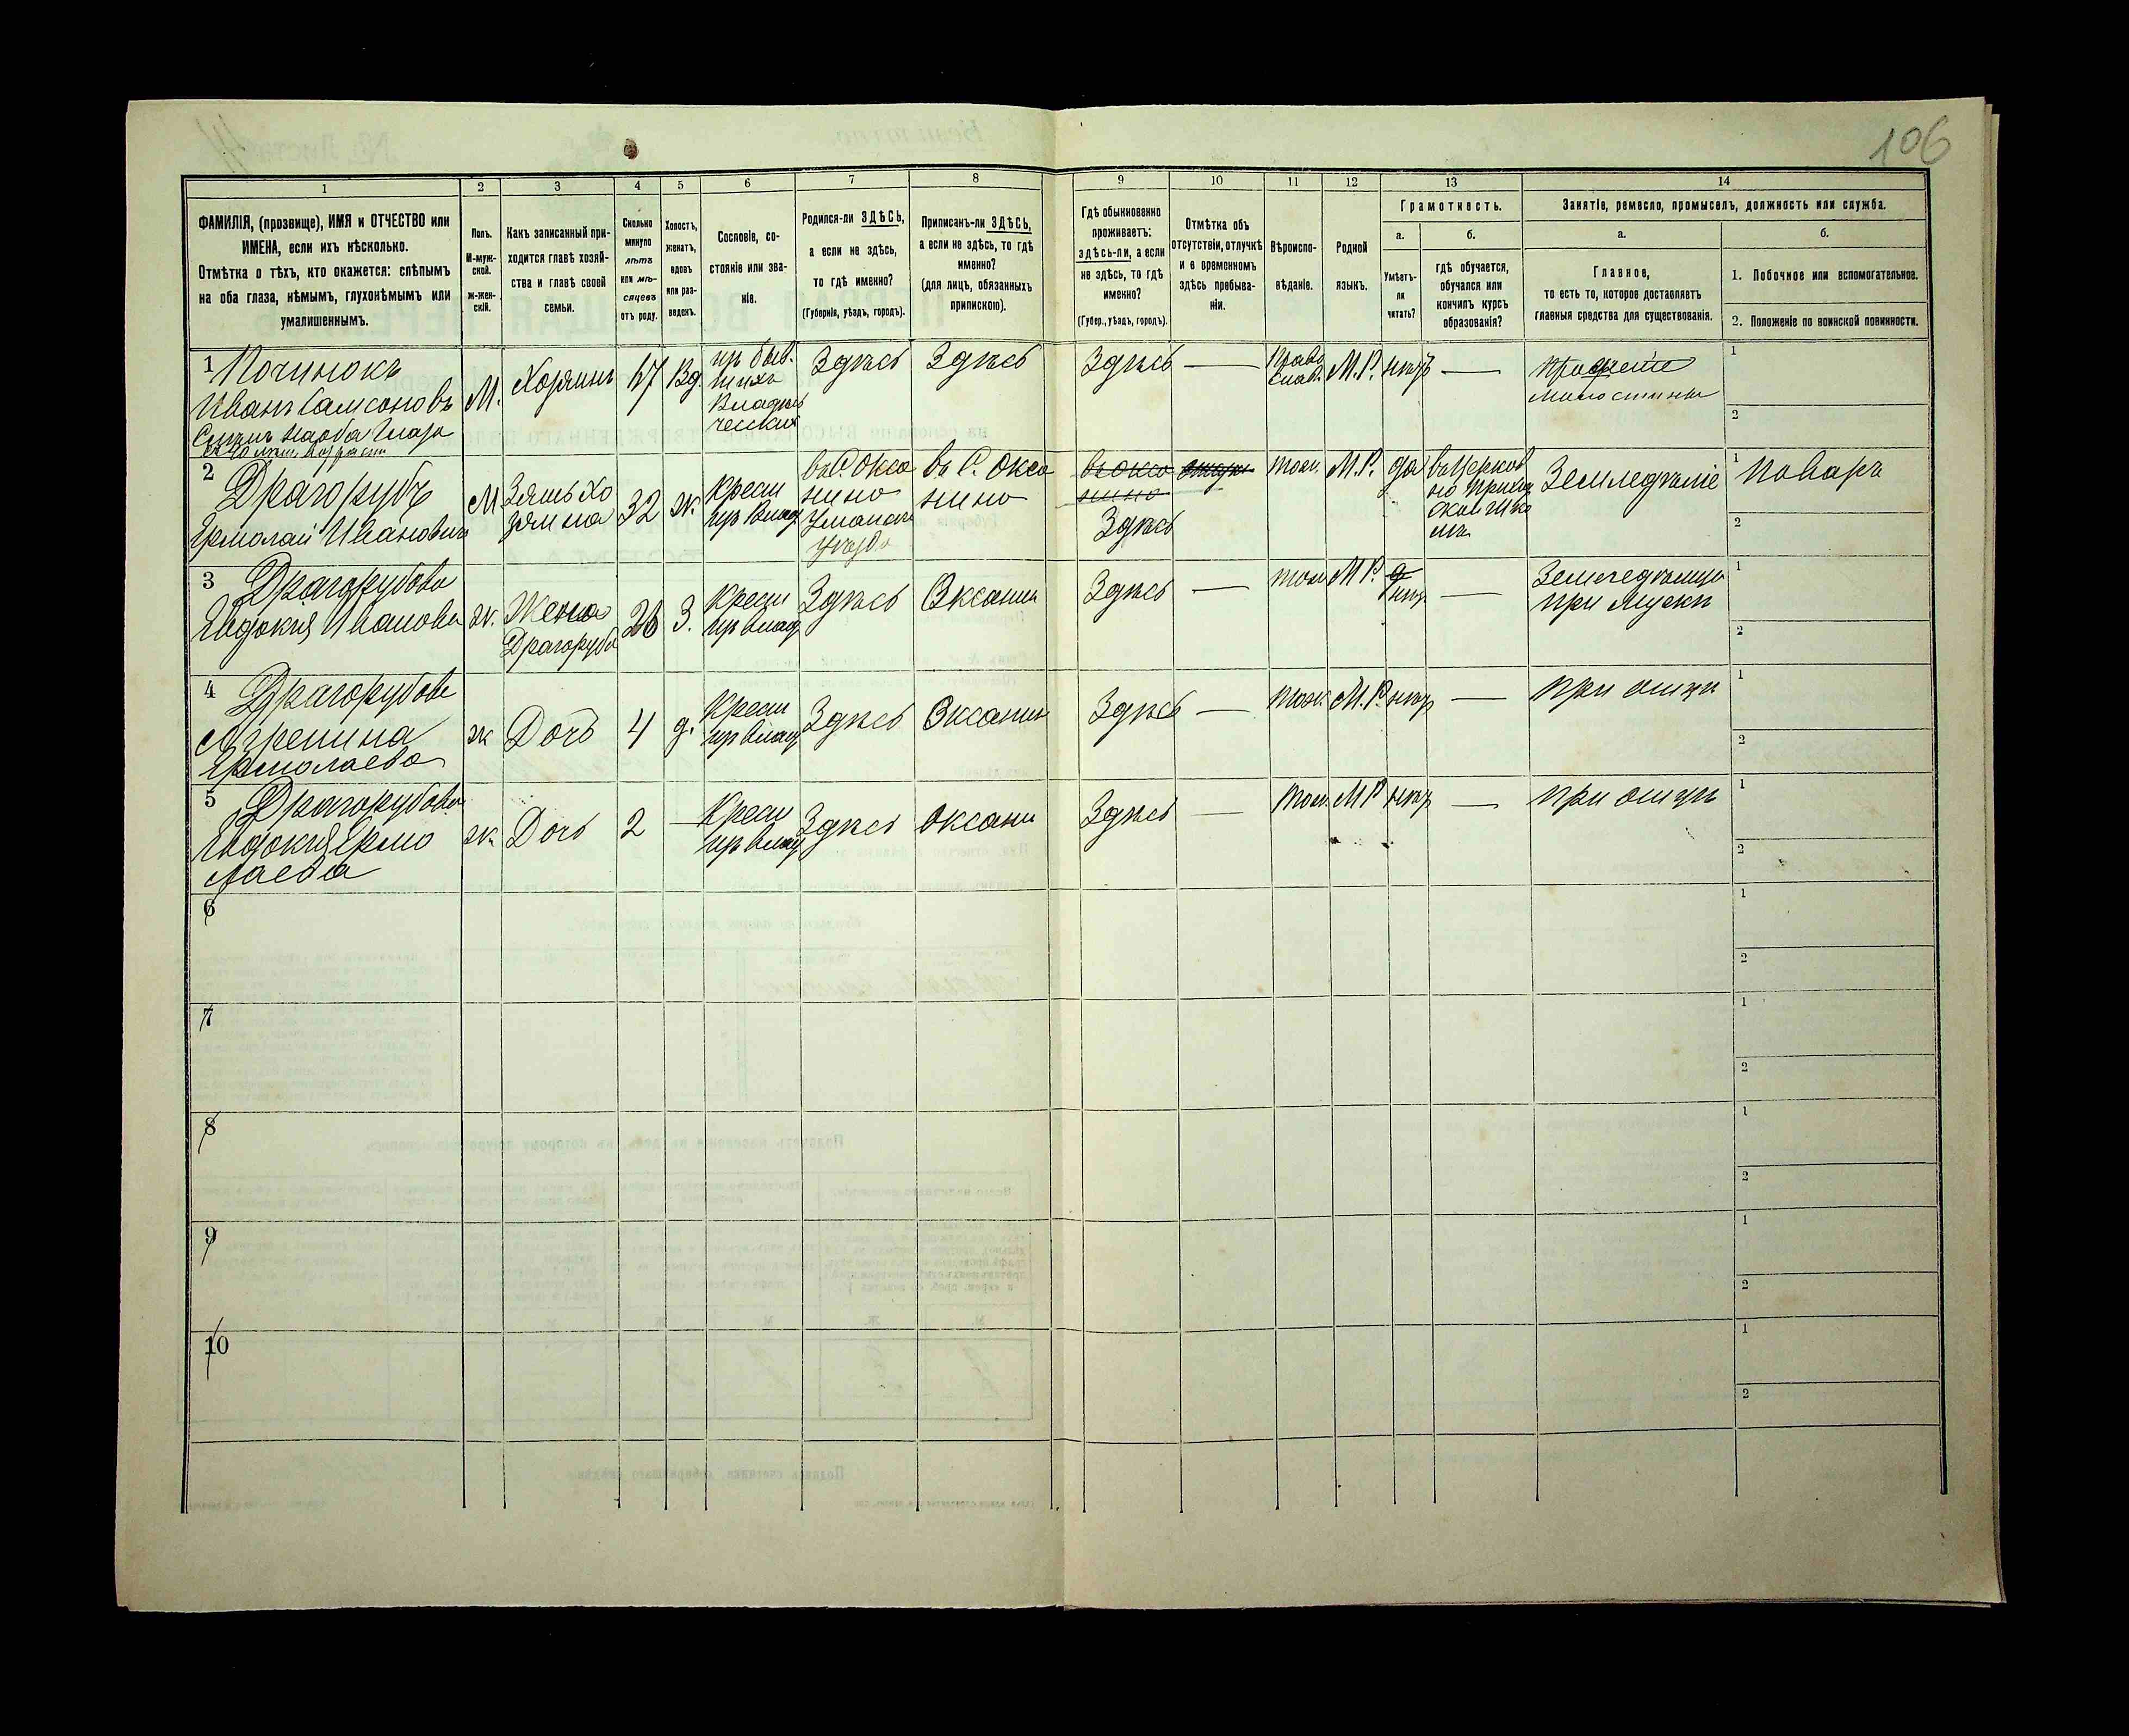 106
1 2 3 4 5 6 7 8 9 10 11 12 13 14
ФАМИЛІЯ, (прозвище), ИМЯ и ОТЧЕСТВО или
ИМЕНА, если ихъ нѣсколько.
Отмѣтка о тѣхъ, кто окажется: слѣпымъ
на оба глаза, нѣмымъ, глухонѣмымъ или
умалишеннымъ.
Полъ.
М-муж-
ской.
ж-жен-
скій.
Какъ записанный при-
ходится главѣ хозяй-
ства и главѣ своей
семьи.
Сколько
минуло
лѣтъ
или мѣ-
сяцевъ
отъ роду.
Холостъ,
женатъ,
вдовъ
или раз-
веденъ.
Сословіе, со-
стояніе или зва-
ніе.
Родился-ли ЗДѢСЬ,
а если не здѣсь,
то гдѣ именно?
(Губернія, уѣздъ, городъ).
Приписанъ-ли ЗДѢСЬ,
а если не здѣсь, то гдѣ
именно?
(для лицъ, обязанныхъ
припискою).
Гдѣ обыкновенно
проживаетъ:
здѣсь-ли, а если
не здѣсь, то гдѣ
именно?
(Губер., уѣздъ, городъ).
Отмѣтка объ
отсутствіи, отлучкѣ
и о временномъ
здѣсь пребыва-
ніи.
Вѣроиспо-
вѣданіе.
Родной
языкъ.
Грамотность.
а.
Умѣетъ-
ли
читать?
б.
гдѣ обучается,
обучался или
кончилъ курсъ
образованія?
Занятіе, ремесло, промыселъ, должность или служба.
а.
Главное,
то есть то, которое доставляетъ
главныя средства для существованія.
б.
1. Побочное или вспомогательное.
2. Положеніе по воинской повинности.
1 Починокъ
Иванъ Самсоновъ
М.
Хозяинъ
67
Вд.
изъ быв.
шихъ
Владѣль
ческихъ
Здѣсь
Здѣсь
Здѣсь —
Право
слав.
М.Р.
нѣтъ —
Прошеніе
милостины
1
2
2 Драгорубъ
Ермолай Ивановичъ
М
Зять Хо
зяина
32
ж.
Крест
изъ Влад.
въ С. Окса
нино
Уманска
Уѣзда
въ С. Окса
нино
въ Окса
нино
Здѣсь
тож.
М.Р.
да
въ Церков
но Приход
ской Шко
лѣ
Земледѣліе
1 Поваръ
2
3 Драгорубова
Евдокия Иванова
ж.
Жена
Драгоруба
26
З.
Крест
изъ Влад.
Здѣсь
Оксанин
Здѣсь —
тож
М.Р.
нѣт —
Земледѣлица
при мужѣ
1
2
4 Драгорубова
Агрепина
Ермолаева
ж
Дочь
4
д.
Крест
изъ Влад
Здѣсь
Оксанин
Здѣсь —
тож.
М.Р.
нѣт —
при отцѣ
1
2
5 Драгорубова
Евдокия Ермо
лаева
ж.
Дочь
2 —
Крест
изъ Влад
Здѣсь
Оксанин
Здѣсь —
тож.
М.Р
нѣт —
при отцѣ
1
2
6
1
2
7
1
2
8
1
2
9
1
2
10
1
2